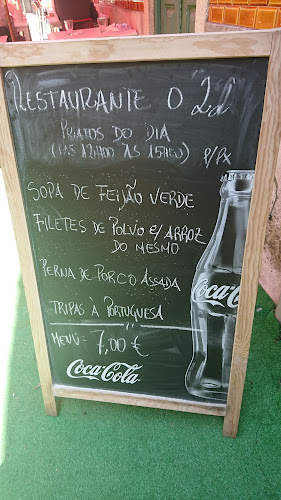 RESTAURANTE O 22
PRATOS DO DIA
(DAS 12H00 ÀS 15H00) P/PX
SOPA DE FEIJÃO VERDE
FILETES DE POLVO C/ ARROZ
DO MESMO
PERNA DE PORCO ASSADA
TRIPAS À PORTUGUESA
MENÚ: 7,00 €
Coca-Cola
Coca-Cola